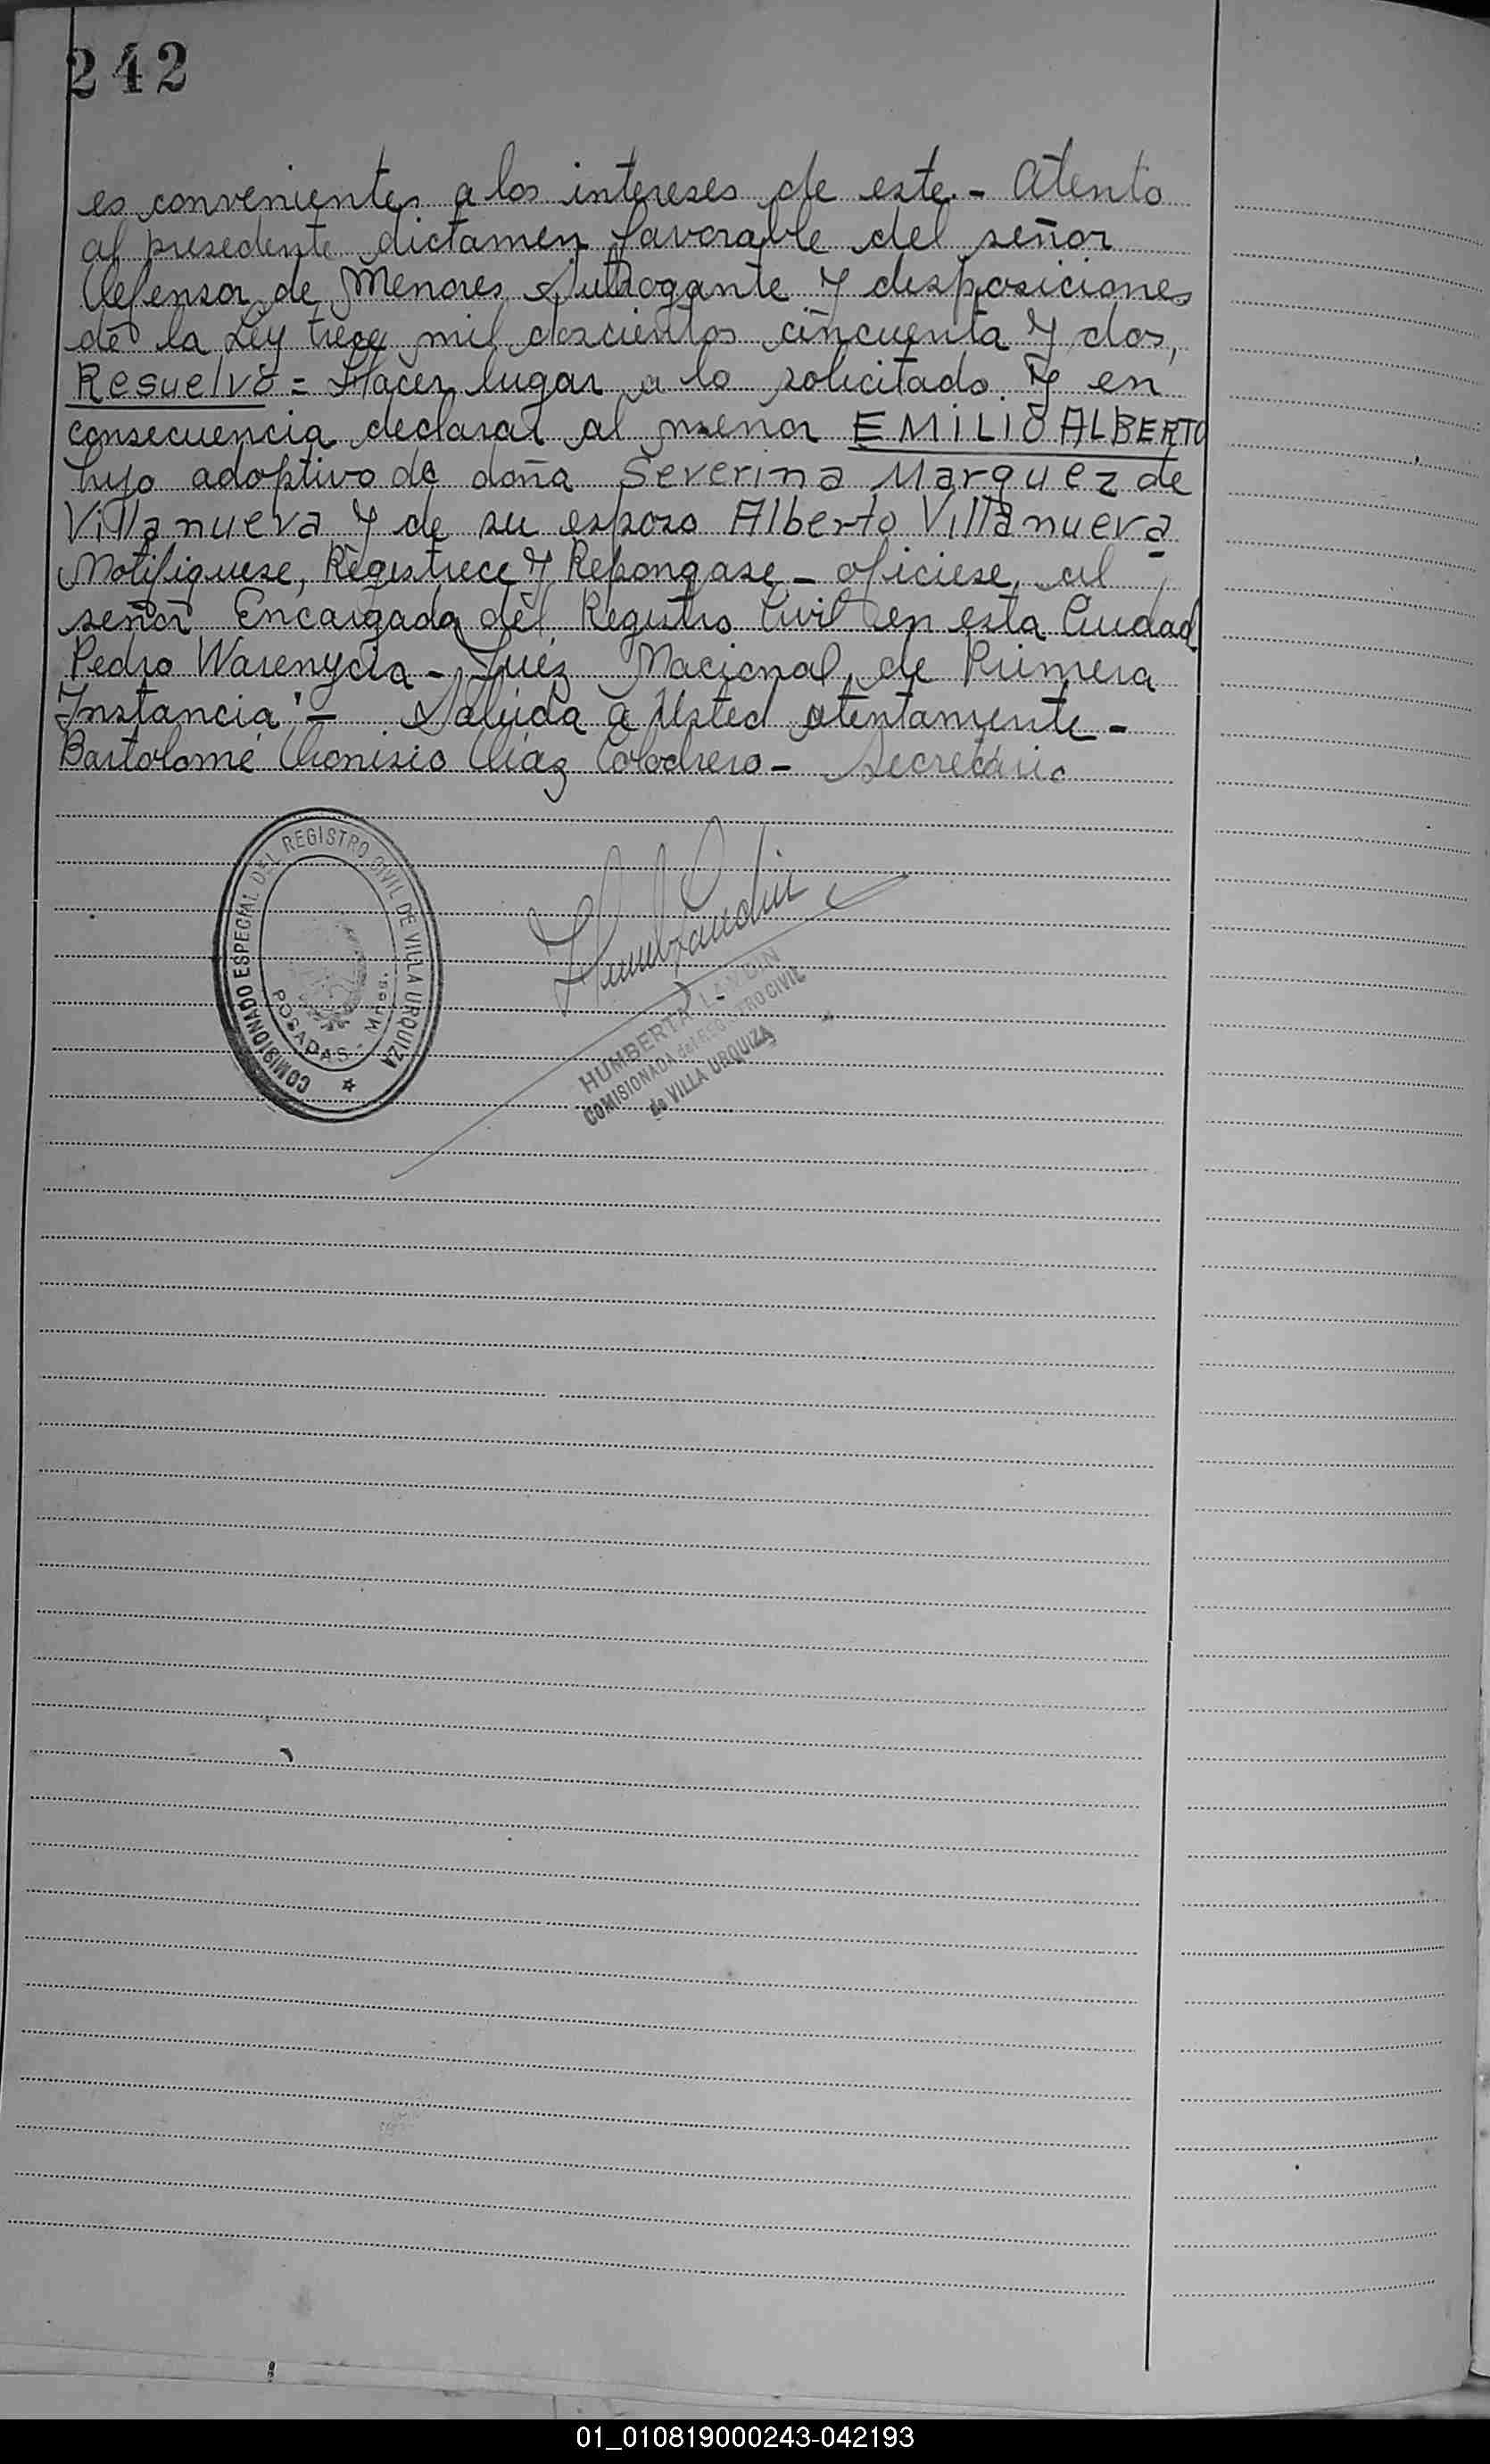 242
es convenientes a los intereses de este.- Atento
al presedente dictamen favorable del señor
Defensor de Menores Subrogante y desposiciones
de la Ley trece mil doscientos cincuenta y dos,
Resuelvo = Hacer lugar a lo solicitado y en
consecuencia declarar al menor EMILIO ALBERTO
hijo adoptivo de doña Severina Marquez de
Villanueva y de su esposo Alberto Villanueva
Notifiquese, Registrece y Repongase - oficiese, al
señor Encargado del Registro Civil en esta Ciudad
Pedro Warenycia - Juéz Nacional de Primera
Instancia".- Saluda a Usted atentamente -
Bartolomé Dionisio Díaz Colodrero - Secretario
COMISIONADO ESPECIAL DEL REGISTRO CIVIL DE VILLA URQUIZA
POSADAS - Mnes.
HUMBERTA LANDIN
COMISIONADA del REGISTRO CIVIL
de VILLA URQUIZA
01_010819000243-042193